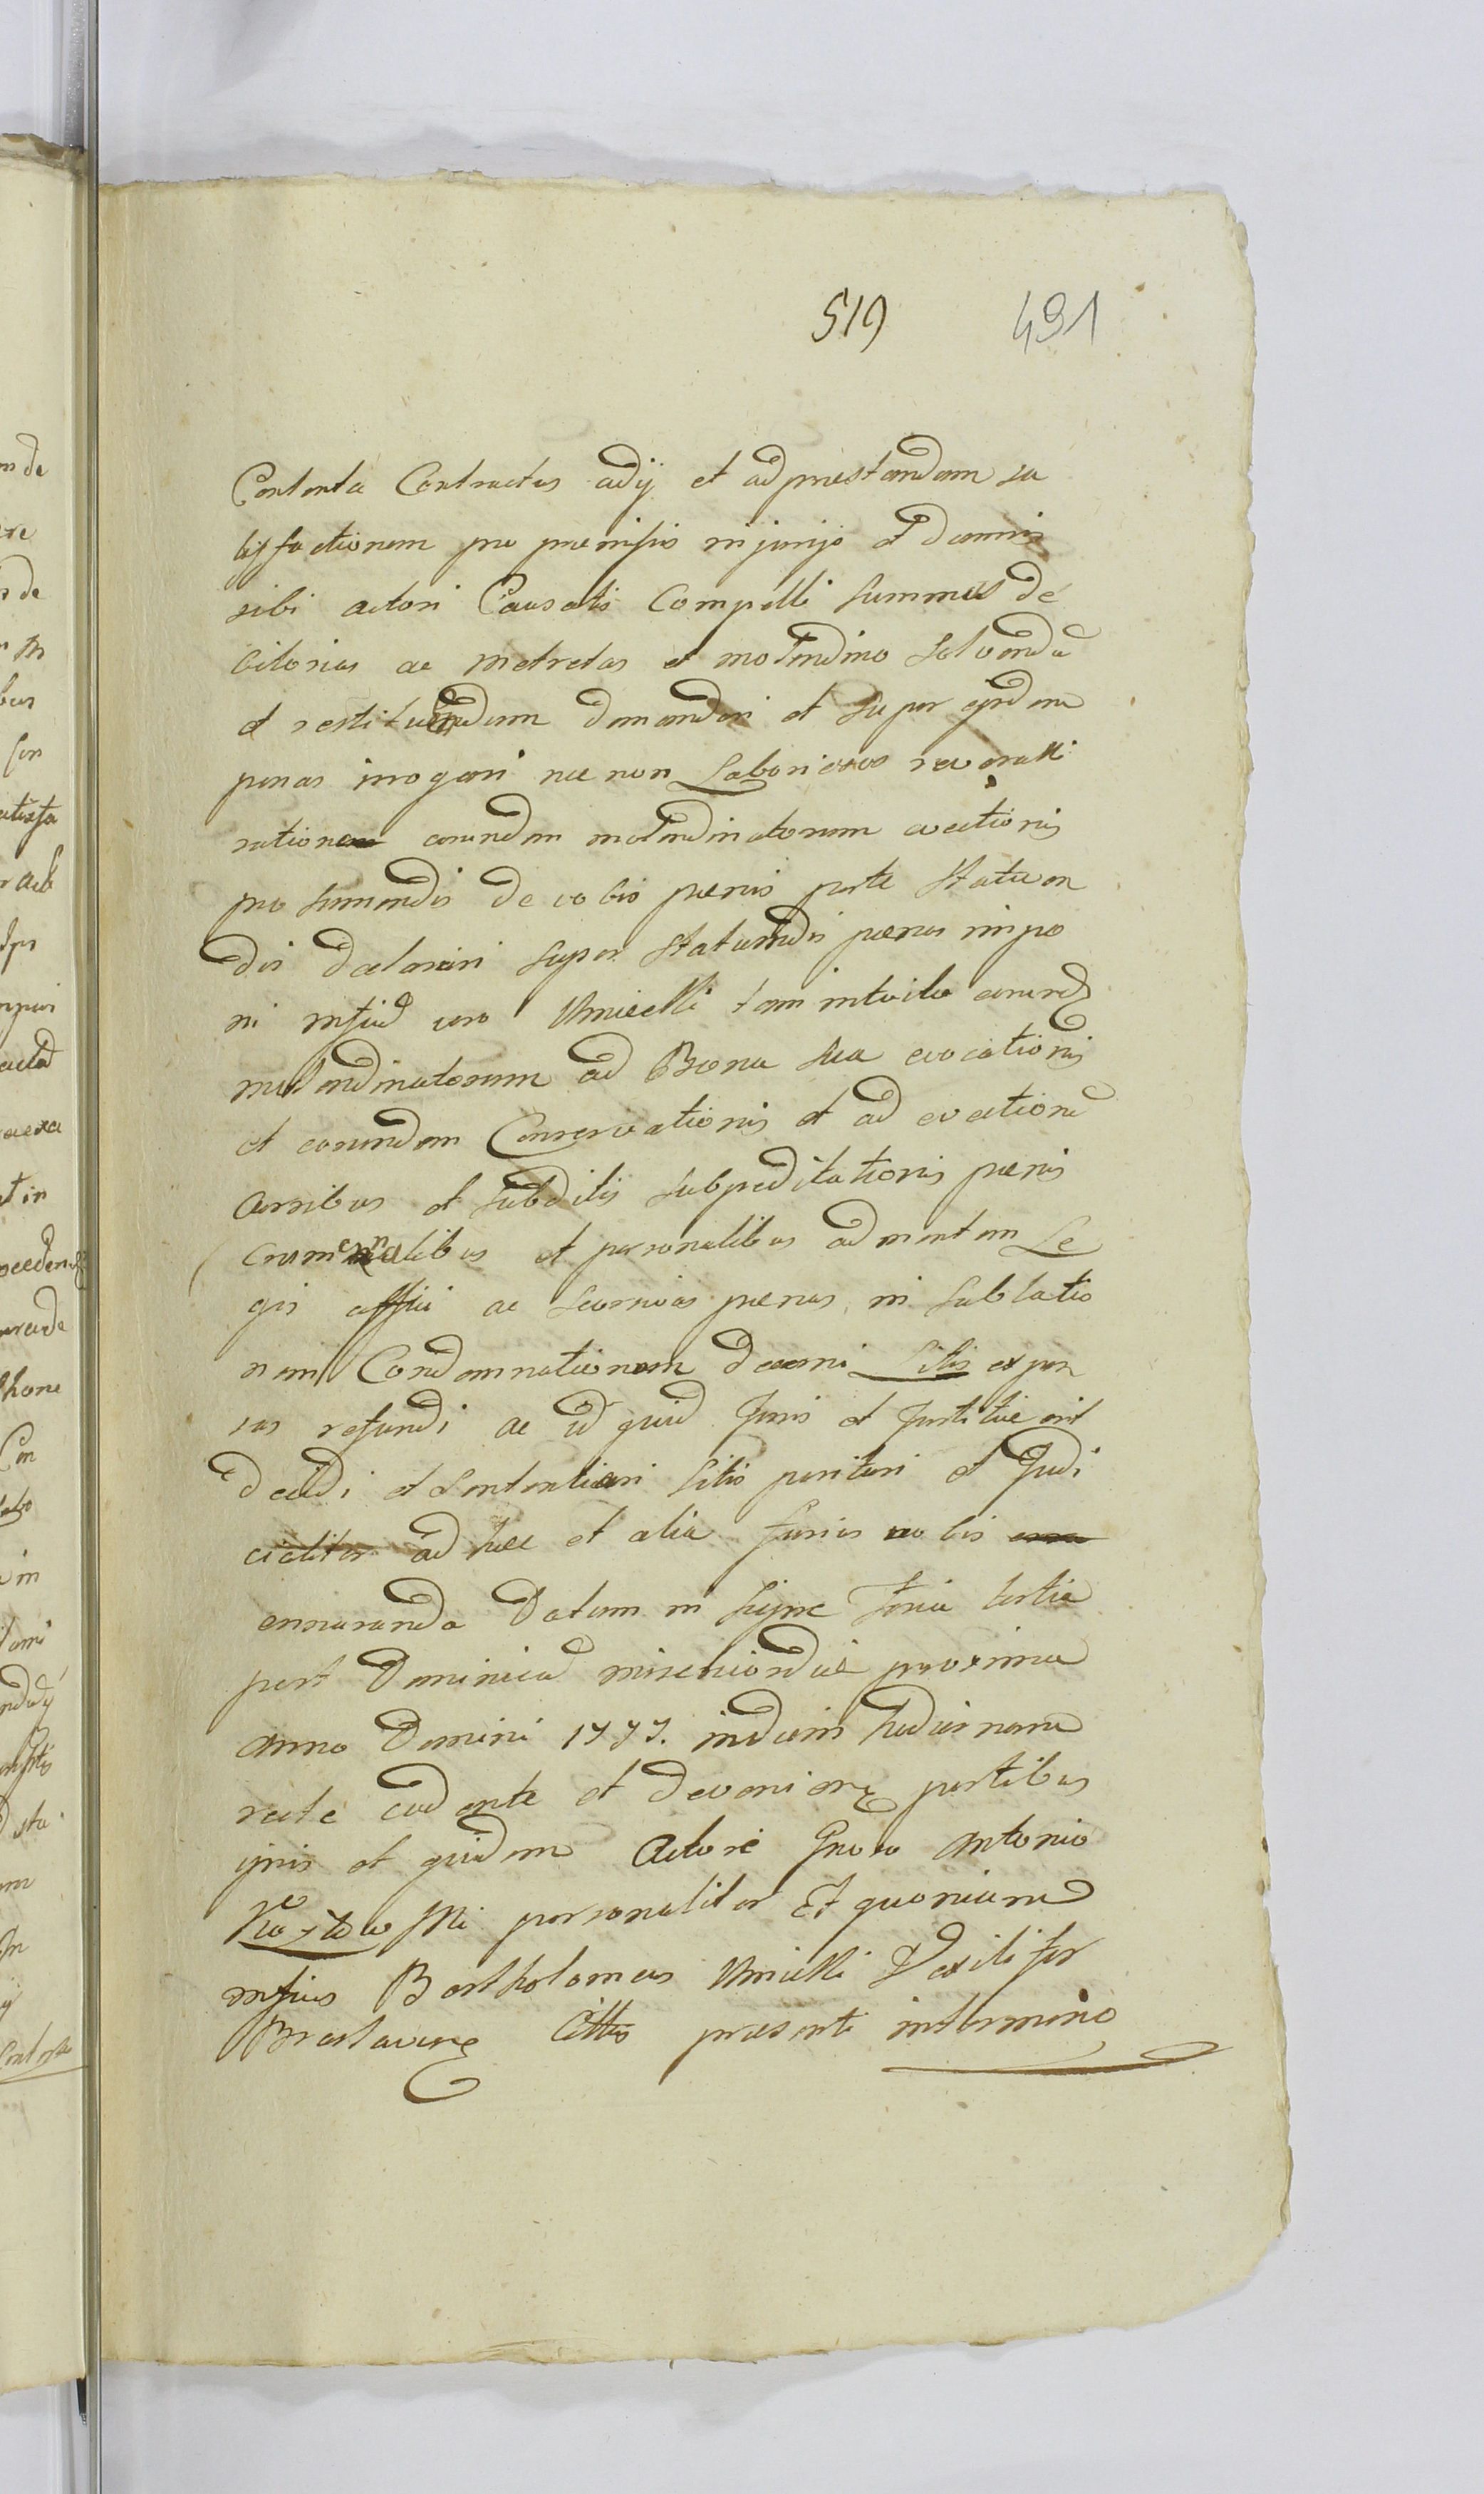 519 491
Contenta Contractus adij et ad praestandam sa
tisfactionem pro praemissis injungi et damnis
sibi actori Causatis Compelli Summas de
bitorias ac metretas e molendino solvenda
et restituendam demandari et super ejsdem
penas irrogari nec non Laboriosos
ratione eorundem molendinatorum evectionis
pro sumendis de vobis paenis parte statuen
dis declarari super statuendis paenas impo
ni mficd vero Umieccki tam intuitu eorund
molendinatorum ad Bona sua evocationis
et eorundem Conservationis et ad evectione
curribus et subditis subpeditationis paenis
criminalibus et personalibus ad mentem Le
gis affici ac seorsivas paenas in sublatio
nem Condemnationem decerni Litis expen
sas refundi ac id quid Juris et Justitiae erit
decidi et Sententiari Citio parituri et Judi
cialiter ad haec et alia furius vobis
ennaranda Datum in Sepne feria tertia
post Dominicā misericordiae proxima
anno Domini 1777. indiciis hodiername
recte cadente et deveniene partibus
ipsis et quidem Actore Gnoso Antonio
personaliter Et quoniam
mficus Bartholomeus Umiecki Vexilifer
Braclavien Cittus praesenti in termino